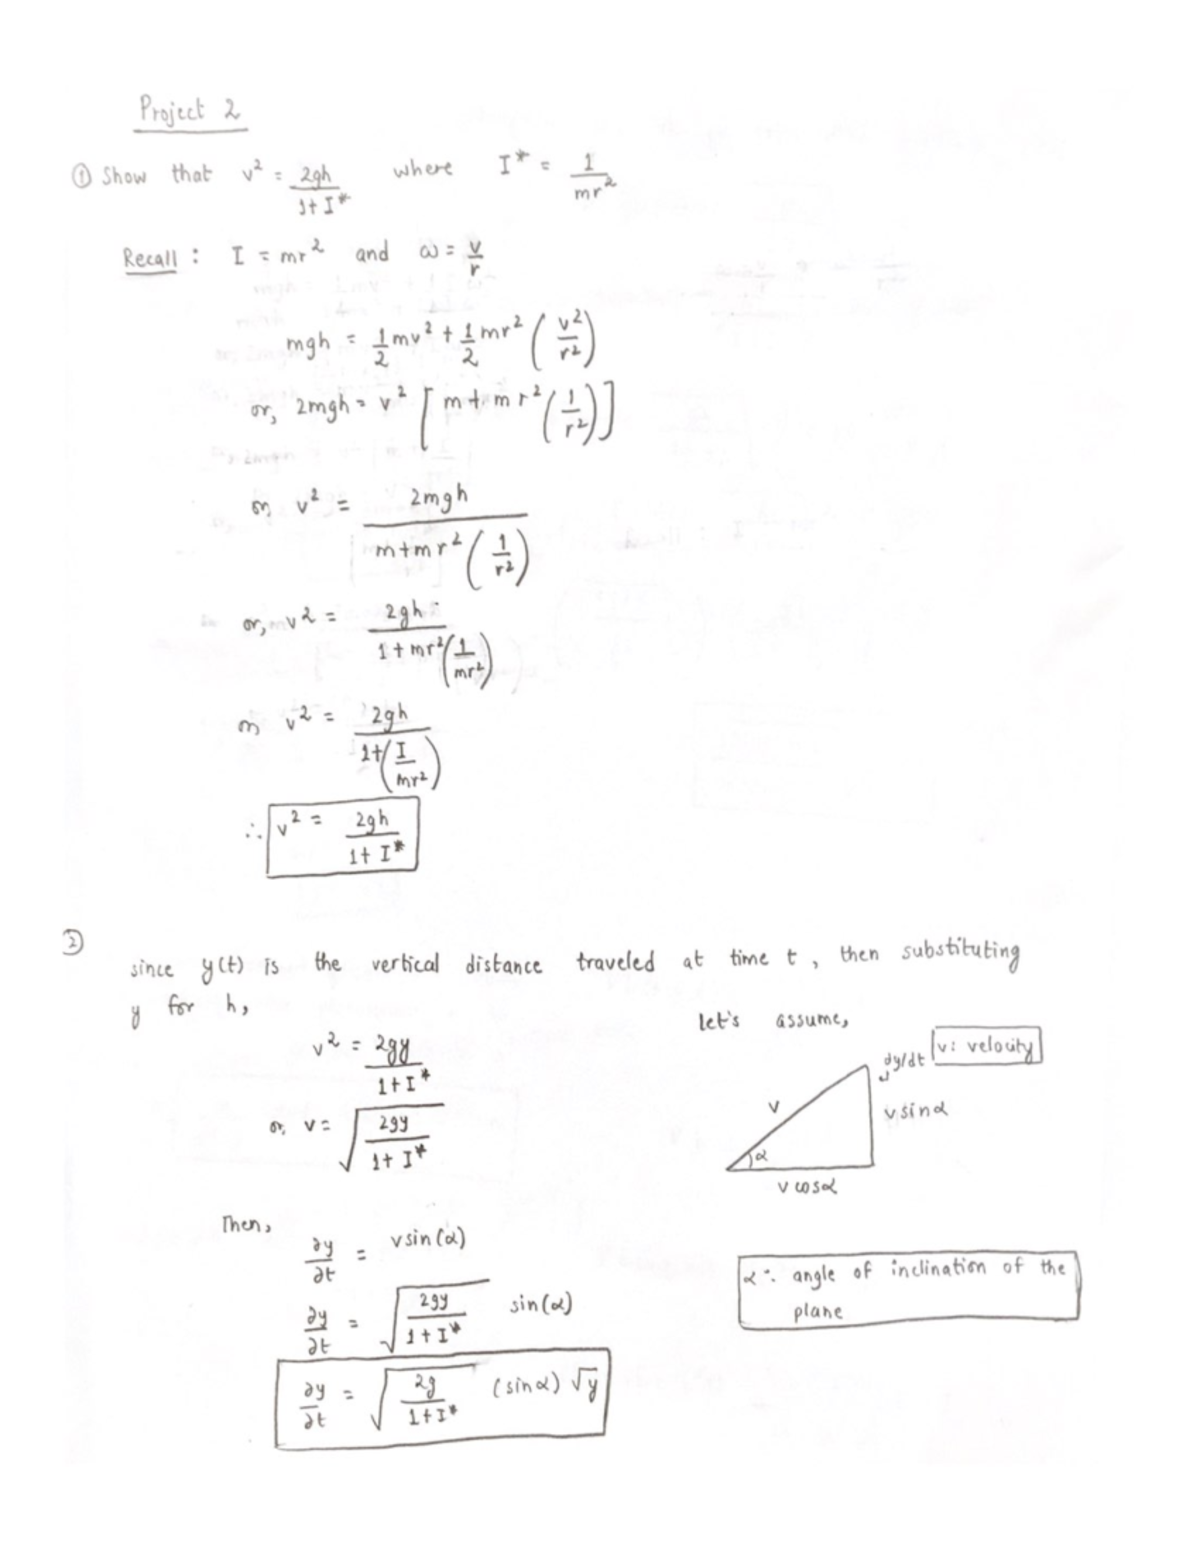 Project 2
① Show that v² = 2gh / 1+I* where I* = 1 / mr²
Recall : I = mr² and ω = v/r
mgh = 1/2 mv² + 1/2 mr² (v²/r²)
or, 2mgh = v² [m + mr² (1/r²)]
or, v² = 2mgh / m+mr² (1/r²)
or, v² = 2gh / 1+mr² (1/mr²)
or v² = 2gh / 1+(I/mr²)
∴ v² = 2gh / 1+I*
② since y(t) is the vertical distance traveled at time t , then substituting
y for h,
v² = 2gy / 1+I*
or, v = √(2gy / 1+I*)
let's assume,
v: velocity
dy/dt
v
v sinα
α
v cosα
Then,
∂y/∂t = v sin(α)
∂y/∂t = √(2gy / 1+I*) sin(α)
∂y/∂t = √(2g / 1+I*) (sinα) √y
α : angle of inclination of the
plane